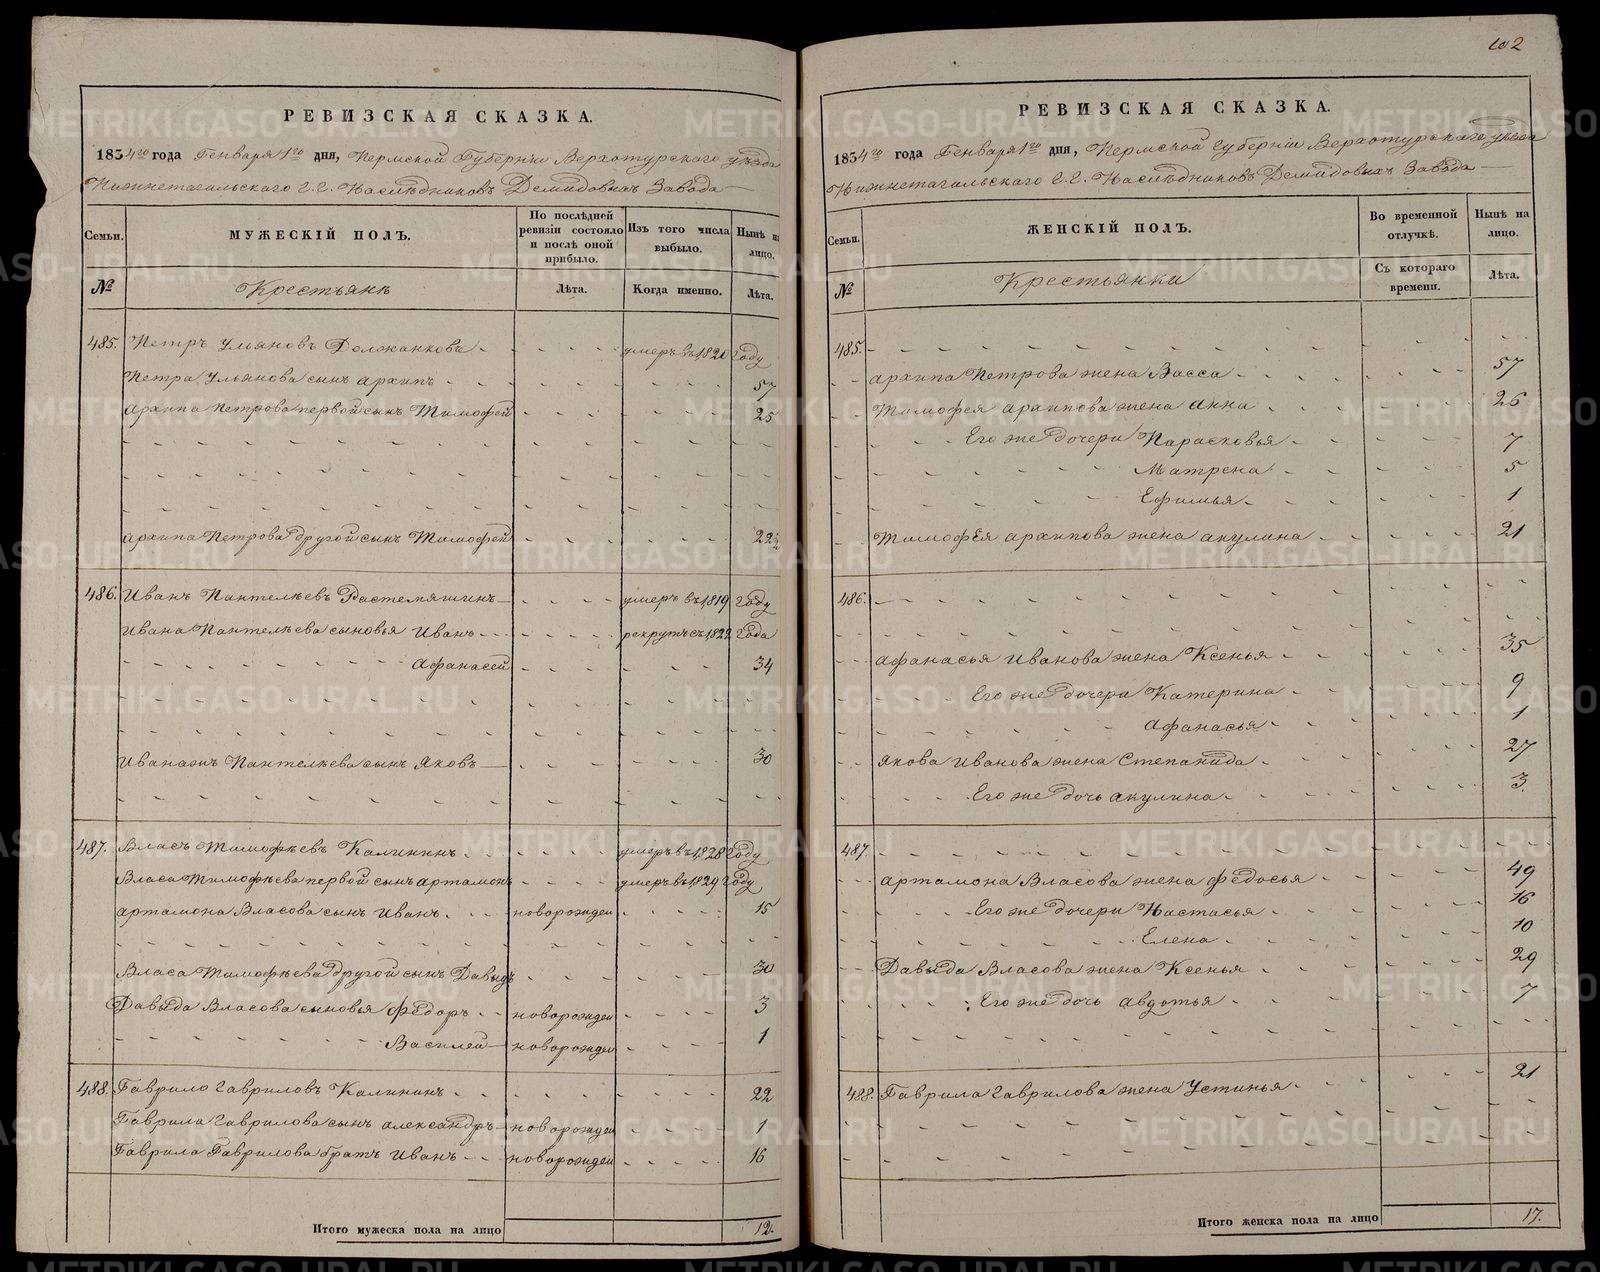 РЕВИЗСКАЯ СКАЗКА.
1834го года Генваря 1го дня, Пермской Губернiи Верхотурскаго уѣзда
Нижнетагильскаго Г.Г. Наслѣдниковъ Демидовыхъ Завода
Семьи.
МУЖЕСКIЙ ПОЛЪ.
По послѣдней ревизiи состояло и послѣ оной прибыло.
Изъ того числа выбыло.
Нынѣ на лицо.
№
Крестьянъ
Лѣта.
Когда именно.
Лѣта.
485. Петръ Ульяновъ умеръ въ 1820 году
Петра Ульянова сынъ Архипъ 57
Архипа Петрова первой сынъ Тимофей 25
Архипа Петрова другой сынъ Тимофей 22½
486. Иванъ Пантелѣевъ Растемяшинъ умеръ въ 1819 году
Ивана Пантелѣева сыновья Иванъ рекрутъ съ 1822 года
Афанасей 34
Пантелѣева сынъ Яковъ 30
487. Власъ Тимофѣевъ Калининъ умеръ въ 1828 году
Власа Тимофѣева первой сынъ Артамонъ умеръ въ 1829 году
Артамона Власова сынъ Иванъ новорожден 15
Власа Тимофѣева другой сынъ Давыдъ 30
Давыда Власова сыновья Фёдоръ новорожден 3
Василей новорожден 1
488. Гаврило Гавриловъ Калининъ 22
Гаврила Гаврилова сынъ Александръ новорожден 1
Гаврила Гаврилова братъ Иванъ новорожден 16
Итого мужеска пола на лицо 12.
102
РЕВИЗСКАЯ СКАЗКА.
1834го года Генваря 1го дня, Пермской Губернiи Верхотурскаго уѣзда
Нижнетагильскаго Г.Г. Наслѣдниковъ Демидовыхъ Завода
Семьи.
ЖЕНСКIЙ ПОЛЪ.
Во временной отлучкѣ.
Нынѣ на лицо.
№
Крестьянки
Съ котораго времени.
Лѣта.
485.
Архипа Петрова жена Васса 57
Тимофея Архипова жена Анна 26
Его же дочери Парасковья 7
Матрена 5
Ефимья 1
Тимофея Архипова жена Акулина 21
486.
Афанасья Иванова жена Ксенья 35
Его же дочери Катерина 9
Афанасья 1
Якова Иванова жена Степанида 27
Его же дочь Акулина 3.
487.
Артамона Власова жена Федосья 49
Его же дочери Настасья 16
Елена 10
Давыда Власова жена Ксенья 29
Его же дочь Авдотья 7
488. Гаврила Гаврилова жена Устинья 21
Итого женска пола на лицо 17.
METRIKI.GASO-URAL.RU